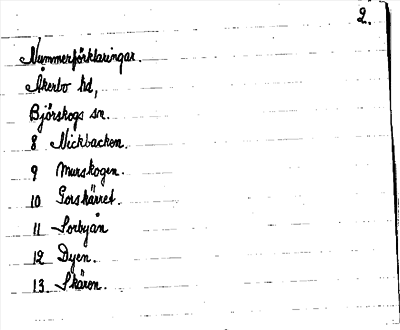 2.
Nummerförklaringar.
Åkerbo hd,
Björskogs sn.
8 Nickbacken.
9 Murskogen.
10 Gorskärret.
11 Sorbyån
12 Dyen.
13 Skären.